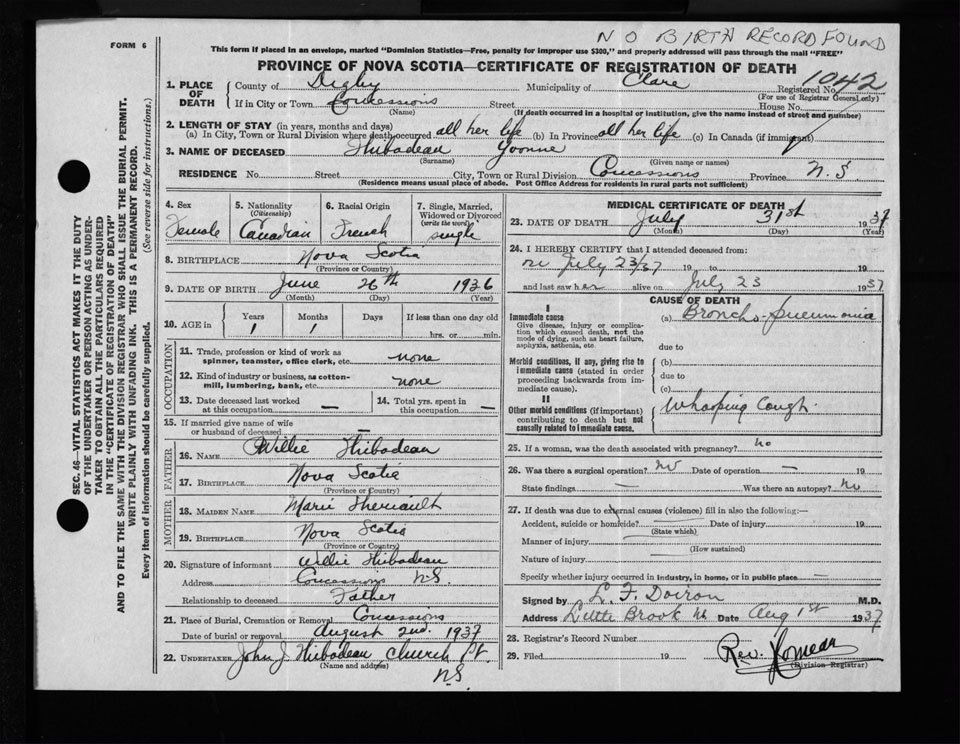 NO BIRTH RECORD FOUND
FORM 6
This form if placed in an envelope, marked "Dominion Statistics—Free, penalty for improper use $300," and properly addressed will pass through the mail "FREE"
PROVINCE OF NOVA SCOTIA—CERTIFICATE OF REGISTRATION OF DEATH
1. PLACE OF DEATH County of Digby Municipality of Clare Registered No. 1042
(For use of Registrar General only)
If in City or Town Concessions Street House No.
(Name) (If death occurred in a hospital or institution, give the name instead of street and number)
2. LENGTH OF STAY (in years, months and days)
(a) In City, Town or Rural Division where death occurred all her life (b) In Province all her life (c) In Canada (if immigrant)
3. NAME OF DECEASED Thibodeau Yvonne
(Surname) (Given name or names)
RESIDENCE No. Street City, Town or Rural Division Concessions Province N.S.
(Residence means usual place of abode. Post Office Address for residents in rural parts not sufficient)
4. Sex Female
5. Nationality (Citizenship) Canadian
6. Racial Origin French
7. Single, Married, Widowed or Divorced (write the word) single
8. BIRTHPLACE Nova Scotia
(Province or Country)
9. DATE OF BIRTH June 26th 1936
(Month) (Day) (Year)
10. AGE in Years Months Days If less than one day old
1 1 hrs. or min.
OCCUPATION
11. Trade, profession or kind of work as spinner, teamster, office clerk, etc. none
12. Kind of industry or business, as cotton-mill, lumbering, bank, etc. none
13. Date deceased last worked at this occupation —
14. Total yrs. spent in this occupation —
15. If married give name of wife or husband of deceased —
FATHER
16. NAME Willie Thibodeau
17. BIRTHPLACE Nova Scotia
(Province or Country)
MOTHER
18. MAIDEN NAME Marie Theriault
19. BIRTHPLACE Nova Scotia
(Province or Country)
20. Signature of informant Willie Thibodeau
Address Concessions N.S.
Relationship to deceased Father
21. Place of Burial, Cremation or Removal Concessions
Date of burial or removal August 2nd. 1937
22. UNDERTAKER John J Thibodeau Church Pt.
(Name and address)
N.S
MEDICAL CERTIFICATE OF DEATH
23. DATE OF DEATH July 31st 1937
(Month) (Day) (Year)
24. I HEREBY CERTIFY that I attended deceased from:
July 23/37 19 to 19
and last saw her alive on July 23 1937
CAUSE OF DEATH
I
Immediate cause
Give disease, injury or complication which caused death, not the mode of dying, such as heart failure, asphyxia, asthenia, etc.
(a) Broncho-pneumonia
due to
Morbid conditions, if any, giving rise to immediate cause (stated in order proceeding backwards from immediate cause).
(b)
due to
(c)
II
Other morbid conditions (if important) contributing to death but not causally related to immediate cause.
Whooping Cough
25. If a woman, was the death associated with pregnancy? no
26. Was there a surgical operation? no Date of operation — 19
State findings — Was there an autopsy? no
27. If death was due to external causes (violence) fill in also the following:—
Accident, suicide or homicide? Date of injury 19
(State which)
Manner of injury
(How sustained)
Nature of injury
Specify whether injury occurred in industry, in home, or in public place —
Signed by L. F. Doiron M.D.
Address Little Brook Date Aug 1st 1937
28. Registrar's Record Number
29. Filed 19 Rev.
(Division Registrar)
SEC. 46—VITAL STATISTICS ACT MAKES IT THE DUTY
OF THE UNDERTAKER OR PERSON ACTING AS UNDER-
TAKER TO OBTAIN ALL THE PARTICULARS REQUIRED
IN THE "CERTIFICATE OF REGISTRATION OF DEATH"
AND TO FILE THE SAME WITH THE DIVISION REGISTRAR WHO SHALL ISSUE THE BURIAL PERMIT.
WRITE PLAINLY WITH UNFADING INK. THIS IS A PERMANENT RECORD.
Every item of information should be carefully supplied. (See reverse side for instructions.)